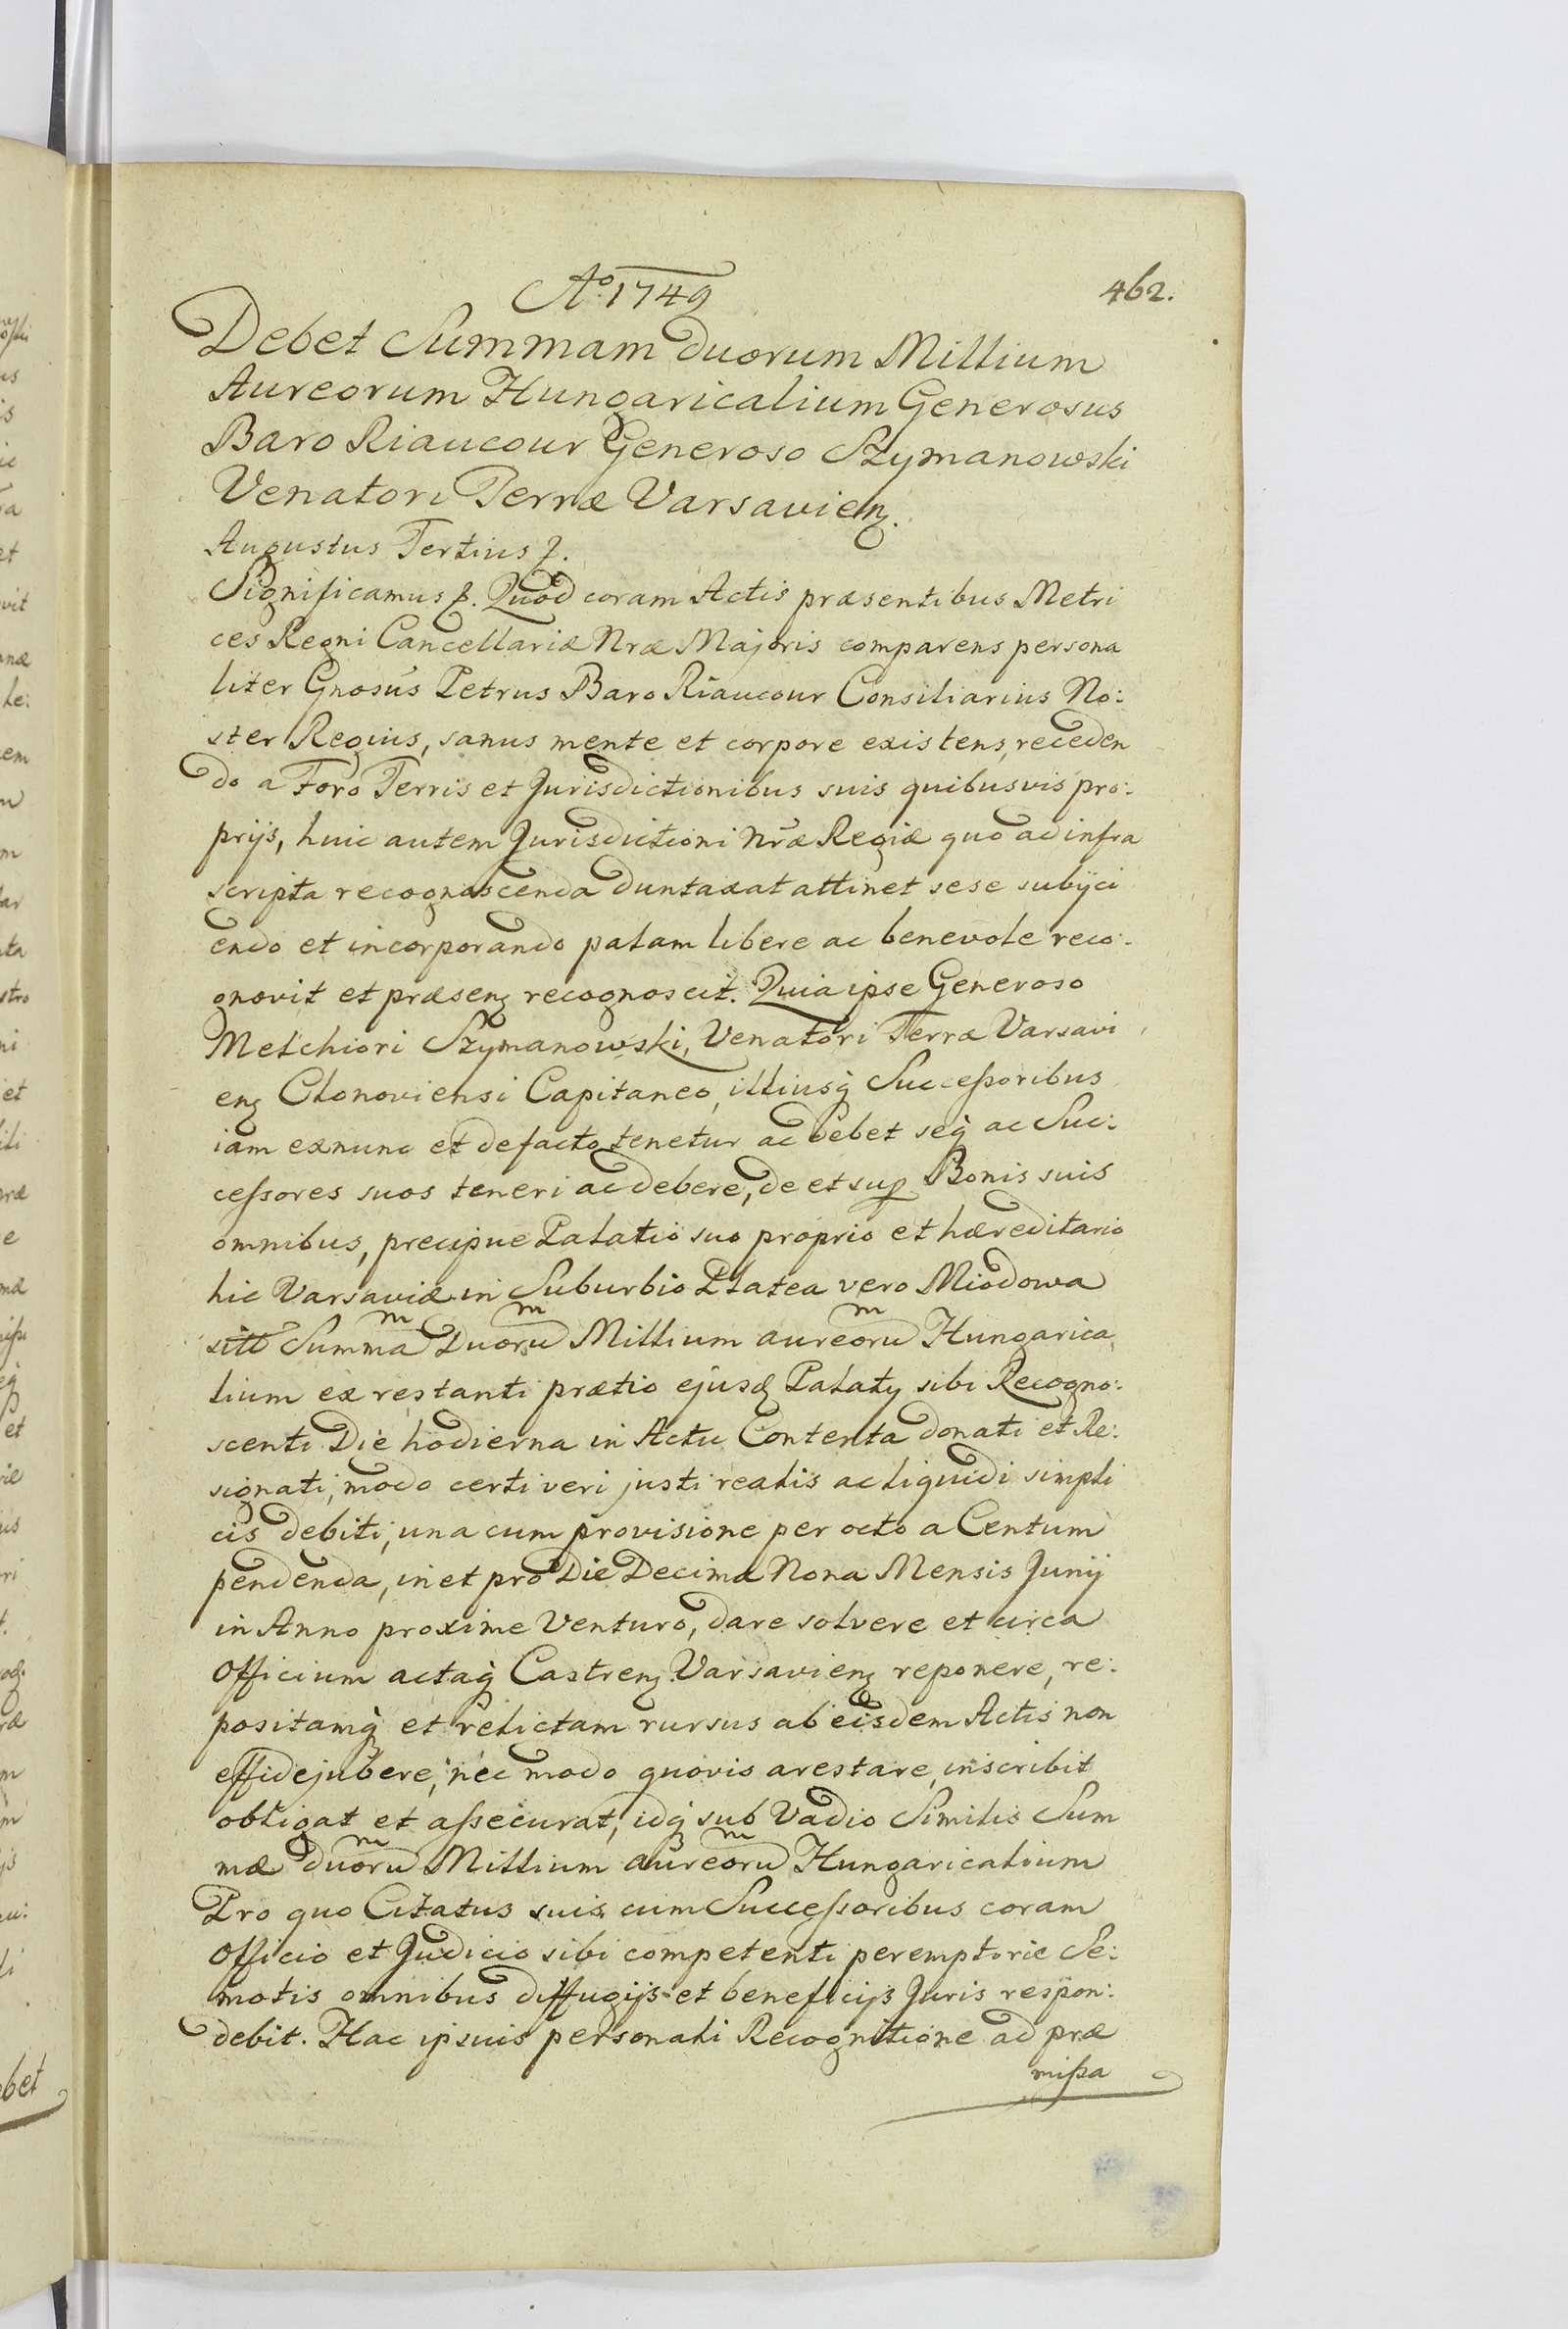 Aº 1749
462.
Debet Summam duorum Millium
Aureorum Hungaricalium Generosus
Baro Riaucour Generoso Szymanowski
Venatori Terræ Varsavien.
Augustus Tertius &.
Significamus &. Quod coram Actis præsentibus Metri
ces Regni Cancellariæ Nræ Majoris comparens persona
liter Gnosus Petrus Baro Riaucour Consiliarius No:
ster Regius, sanus mente et corpore existens, receden
do a Foro Terris et Jurisdictionibus suis quibusvis pro:
prijs, huic autem Jurisdictioni Nræ Regiæ quo ad infra
scripta recognoscenda duntaxat attinet sese subÿci
endo et incorporando palam libere ac benevole reco:
gnovit et præsenz recognoscit. Quia ipse Generoso
Melchiori Szymanowski, Venatori Terræ Varsavi
enz Clonoviensi Capitaneo, illiusq Successoribus
iam exnunc et defacto tenetur ac debet seq ac Suc:
cessores suos teneri ac debere, de et sup Bonis suis
omnibus, precipue Palatio suo proprio et hæreditario
hic Varsaviæ in Suburbio Platea vero Miodowa
sito Summam Duorum Millium aureorum Hungarica
lium ex restanti prætio ejusd Palatij sibi Recogno:
scenti Die hodierna in Actu Contenta donati et Re:
signati, modo certi veri justi realis ac liquidi simpli
cis debiti, una cum provisione per octo a Centum
pendenda, in et pro Die Decima Nona Mensis Junij
in Anno proxime Venturo, dare solvere et circa
Officium actaq Castrenz Varsavienz reponere, re:
positamq et relictam rursus ab eisdem Actis non
effidejubere, nec modo quovis arestare, inscribit
obligat et assecurat, idq sub Vadio Similis Sum
mæ duorum Millium aureorum Hungaricalium
Pro quo Citatus suis cum Successoribus coram
Officio et Judicio sibi competenti peremptorie Se:
motis omnibus diffugijs et beneficijs Juris respon:
debit. Hac ipsius personali Recognitione ad præ
missa